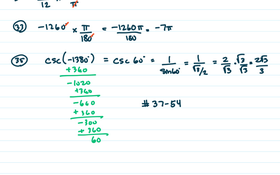 12 π
33) -1260° × π/180° = -1260π/180 = -7π
35) csc(-1380°) = csc 60° = 1/sin60° = 1/(√3/2) = 2/√3 · √3/√3 = 2√3/3
+360
-1020
+360
-660
+360
-300
+360
60
# 37-54